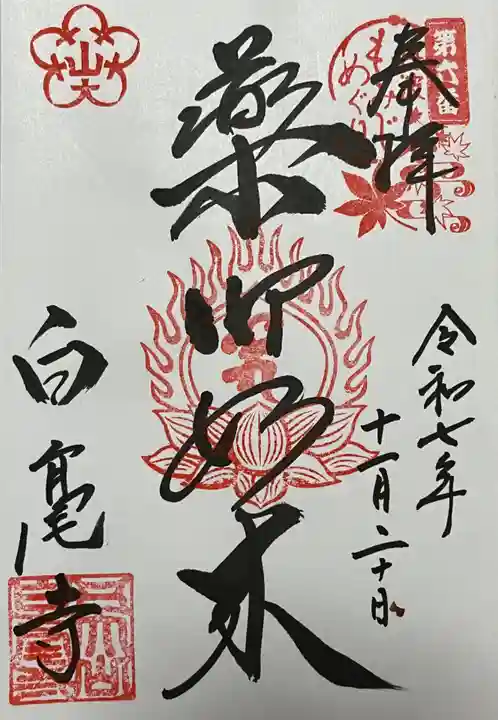 第六番
奉拝
もみじ
めぐり
令和七年
十一月二十日
薬師如来
白毫寺
山大